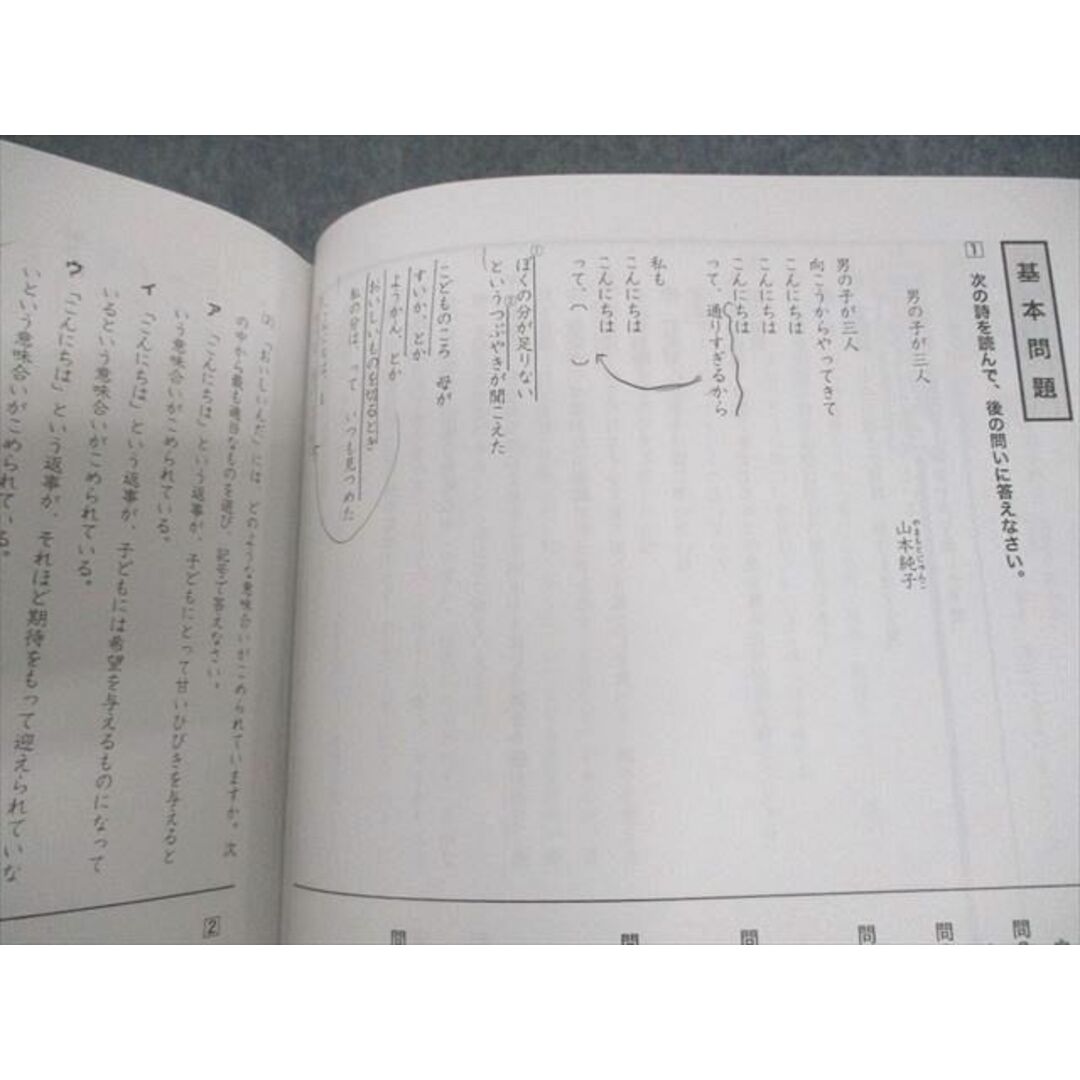 基本問題
1 次の詩を読んで、後の問いに答えなさい。
男の子が三人
山本純子
やまもとじゅんこ
男の子が三人
向こうからやってきて
こんにちは
こんにちは
こんにちは
って、通りすぎるから
私も
こんにちは
こんにちは
って、( )
①ぼくの分が足りない
という②つぶやきが聞こえた
こどものころ 母が
すいか、とか
ようかん、とか
おいしいものを切るとき
私の分は、って いつも見つめた
問
問
問
問
問
問
(2) 「おいしいんだ」には、どのような意味合いがこめられていますか。次
の中から最も適当なものを選び、記号で答えなさい。
ア 「こんにちは」という返事が、子どもにとって甘いひびきを与えると
いう意味合いがこめられている。
イ 「こんにちは」という返事が、子どもには希望を与えるものになって
いるという意味合いがこめられている。
ウ 「こんにちは」という返事が、それほど期待をもって迎えられていな
いという意味合いがこめられている。
2